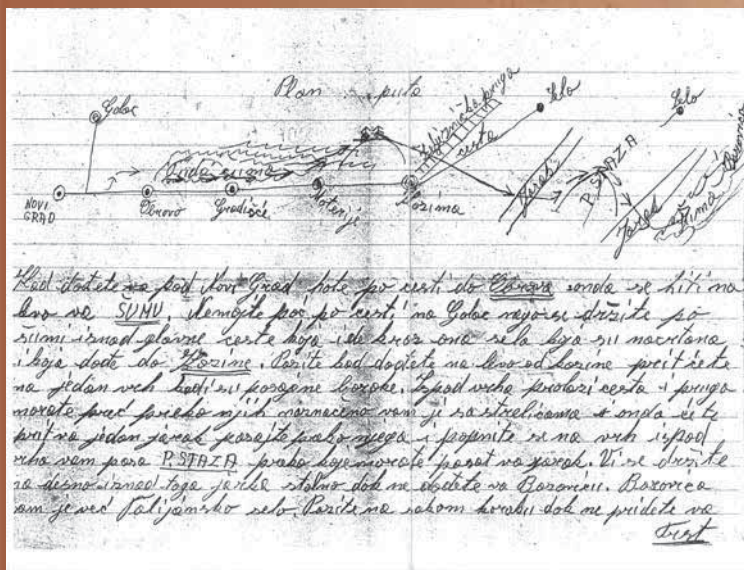 Plan puta
Golac
Željeznička pruga
cesta
Selo
Selo
NOVI
GRAD
Obrovo
Gradišče
Materija
Kozima
Jarak
P. STAZA
Jarak
Šuma
Kad dođete va pod Novi Grad hote po cesti do Obrova onda se hiti na
levo va ŠUMU. Nemojte poć po cesti na Golac nego se držite po
šumi iznad glavne ceste koja ide kroz ona sela koja su nacrtana
i koja dođe do Kozine. Pazite kad dođete na levo od Kozine prit ćete
na jedan vrh kadi su posajene boroke. Ispod vrha prolazi cesta i pruga
morate preć preko njih naznačeno vam je sa strelicama a onda ćete
prit va jedan jarak pasajte preko njega i popnite se na vrh ispod
vrha vam pasa P. STAZA preko koje morate pasat va jarak. Vi se držite
na desno iznad toga jarka stalno dok ne dođete va Bazovicu. Bazovica
vam je već Talijansko selo. Pazite na sakom koraku dok ne pridete va
Trst